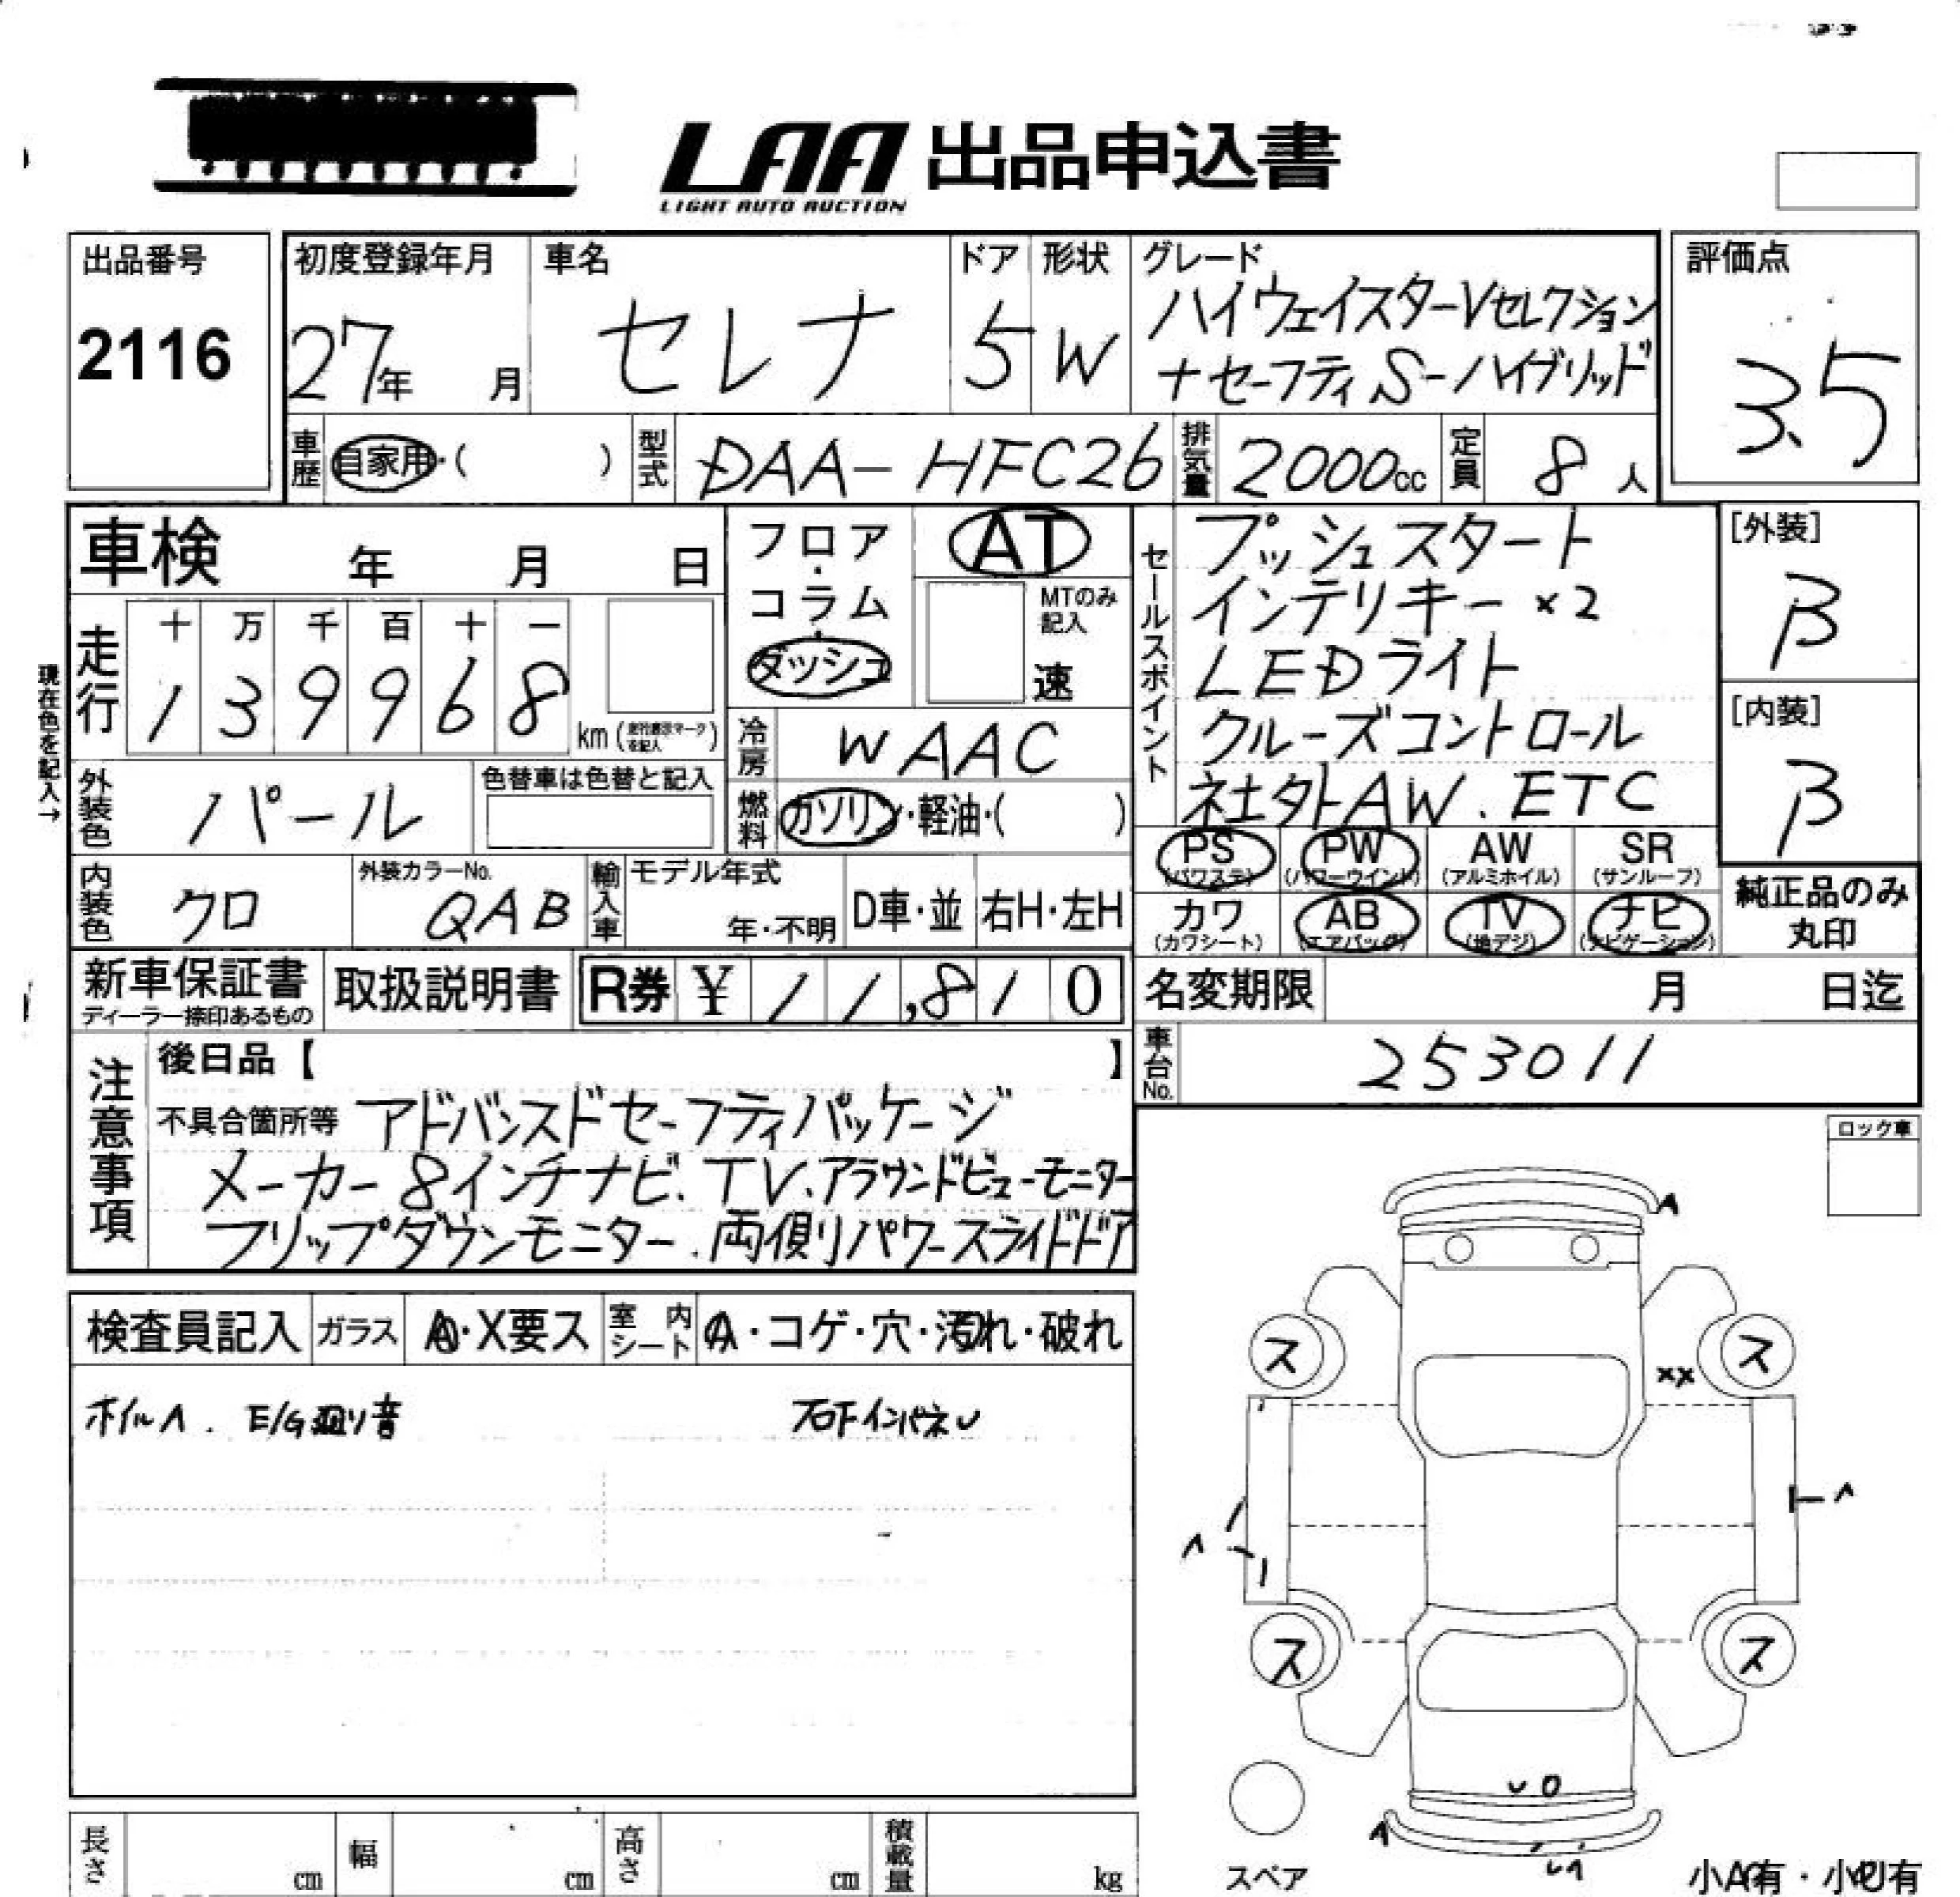 LAA 出品申込書
LIGHT AUTO AUCTION
出品番号
2116
初度登録年月
27年 月
車名
セレナ
ドア
5
形状
W
グレード
ハイウェイスターVセレクション
ナセーフティS-ハイブリッド
評価点
3.5
車歴 自家用・( )
型式 DAA-HFC26
排気量 2000cc
定員 8人
車検 年 月 日
フロア・コラム・ダッシュ
AT
MTのみ記入
速
走行
十 万 千 百 十 一
1 3 9 9 6 8
km
現在色を記入→
冷房 WAAC
外装色 パール
色替車は色替と記入
燃料 ガソリン・軽油・( )
内装色 クロ
外装カラーNo.
QAB
輸入車
モデル年式
年・不明
D車・並
右H・左H
セールスポイント
プッシュスタート
インテリキー×2
LEDライト
クルーズコントロール
社外AW.ETC
[外装]
β
[内装]
β
PS (パワステ)
PW (パワーウインド)
AW (アルミホイル)
SR (サンルーフ)
カワ (カワシート)
AB (エアバッグ)
TV (地デジ)
ナビ (ナビゲーション)
純正品のみ
丸印
新車保証書
ディーラー捺印あるもの
取扱説明書
R券 ¥ 11,810
名変期限 月 日迄
車台No. 253011
注意事項
後日品【 】
不具合箇所等 アドバンスドセーフティパッケージ
メーカー8インチナビ、TV、アラウンドビューモニター
フリップダウンモニター、両側パワースライドドア
ロック車
検査員記入
ガラス A・X要ス
室内シート A・コゲ・穴・汚れ・破れ
ホイルA. E/G廻り音
フロFインパネU
A
ス
ス
XX
A
A
ス
ス
U
A
U
スペア
小A有・小U有
長さ cm
幅 cm
高さ cm
積載量 kg